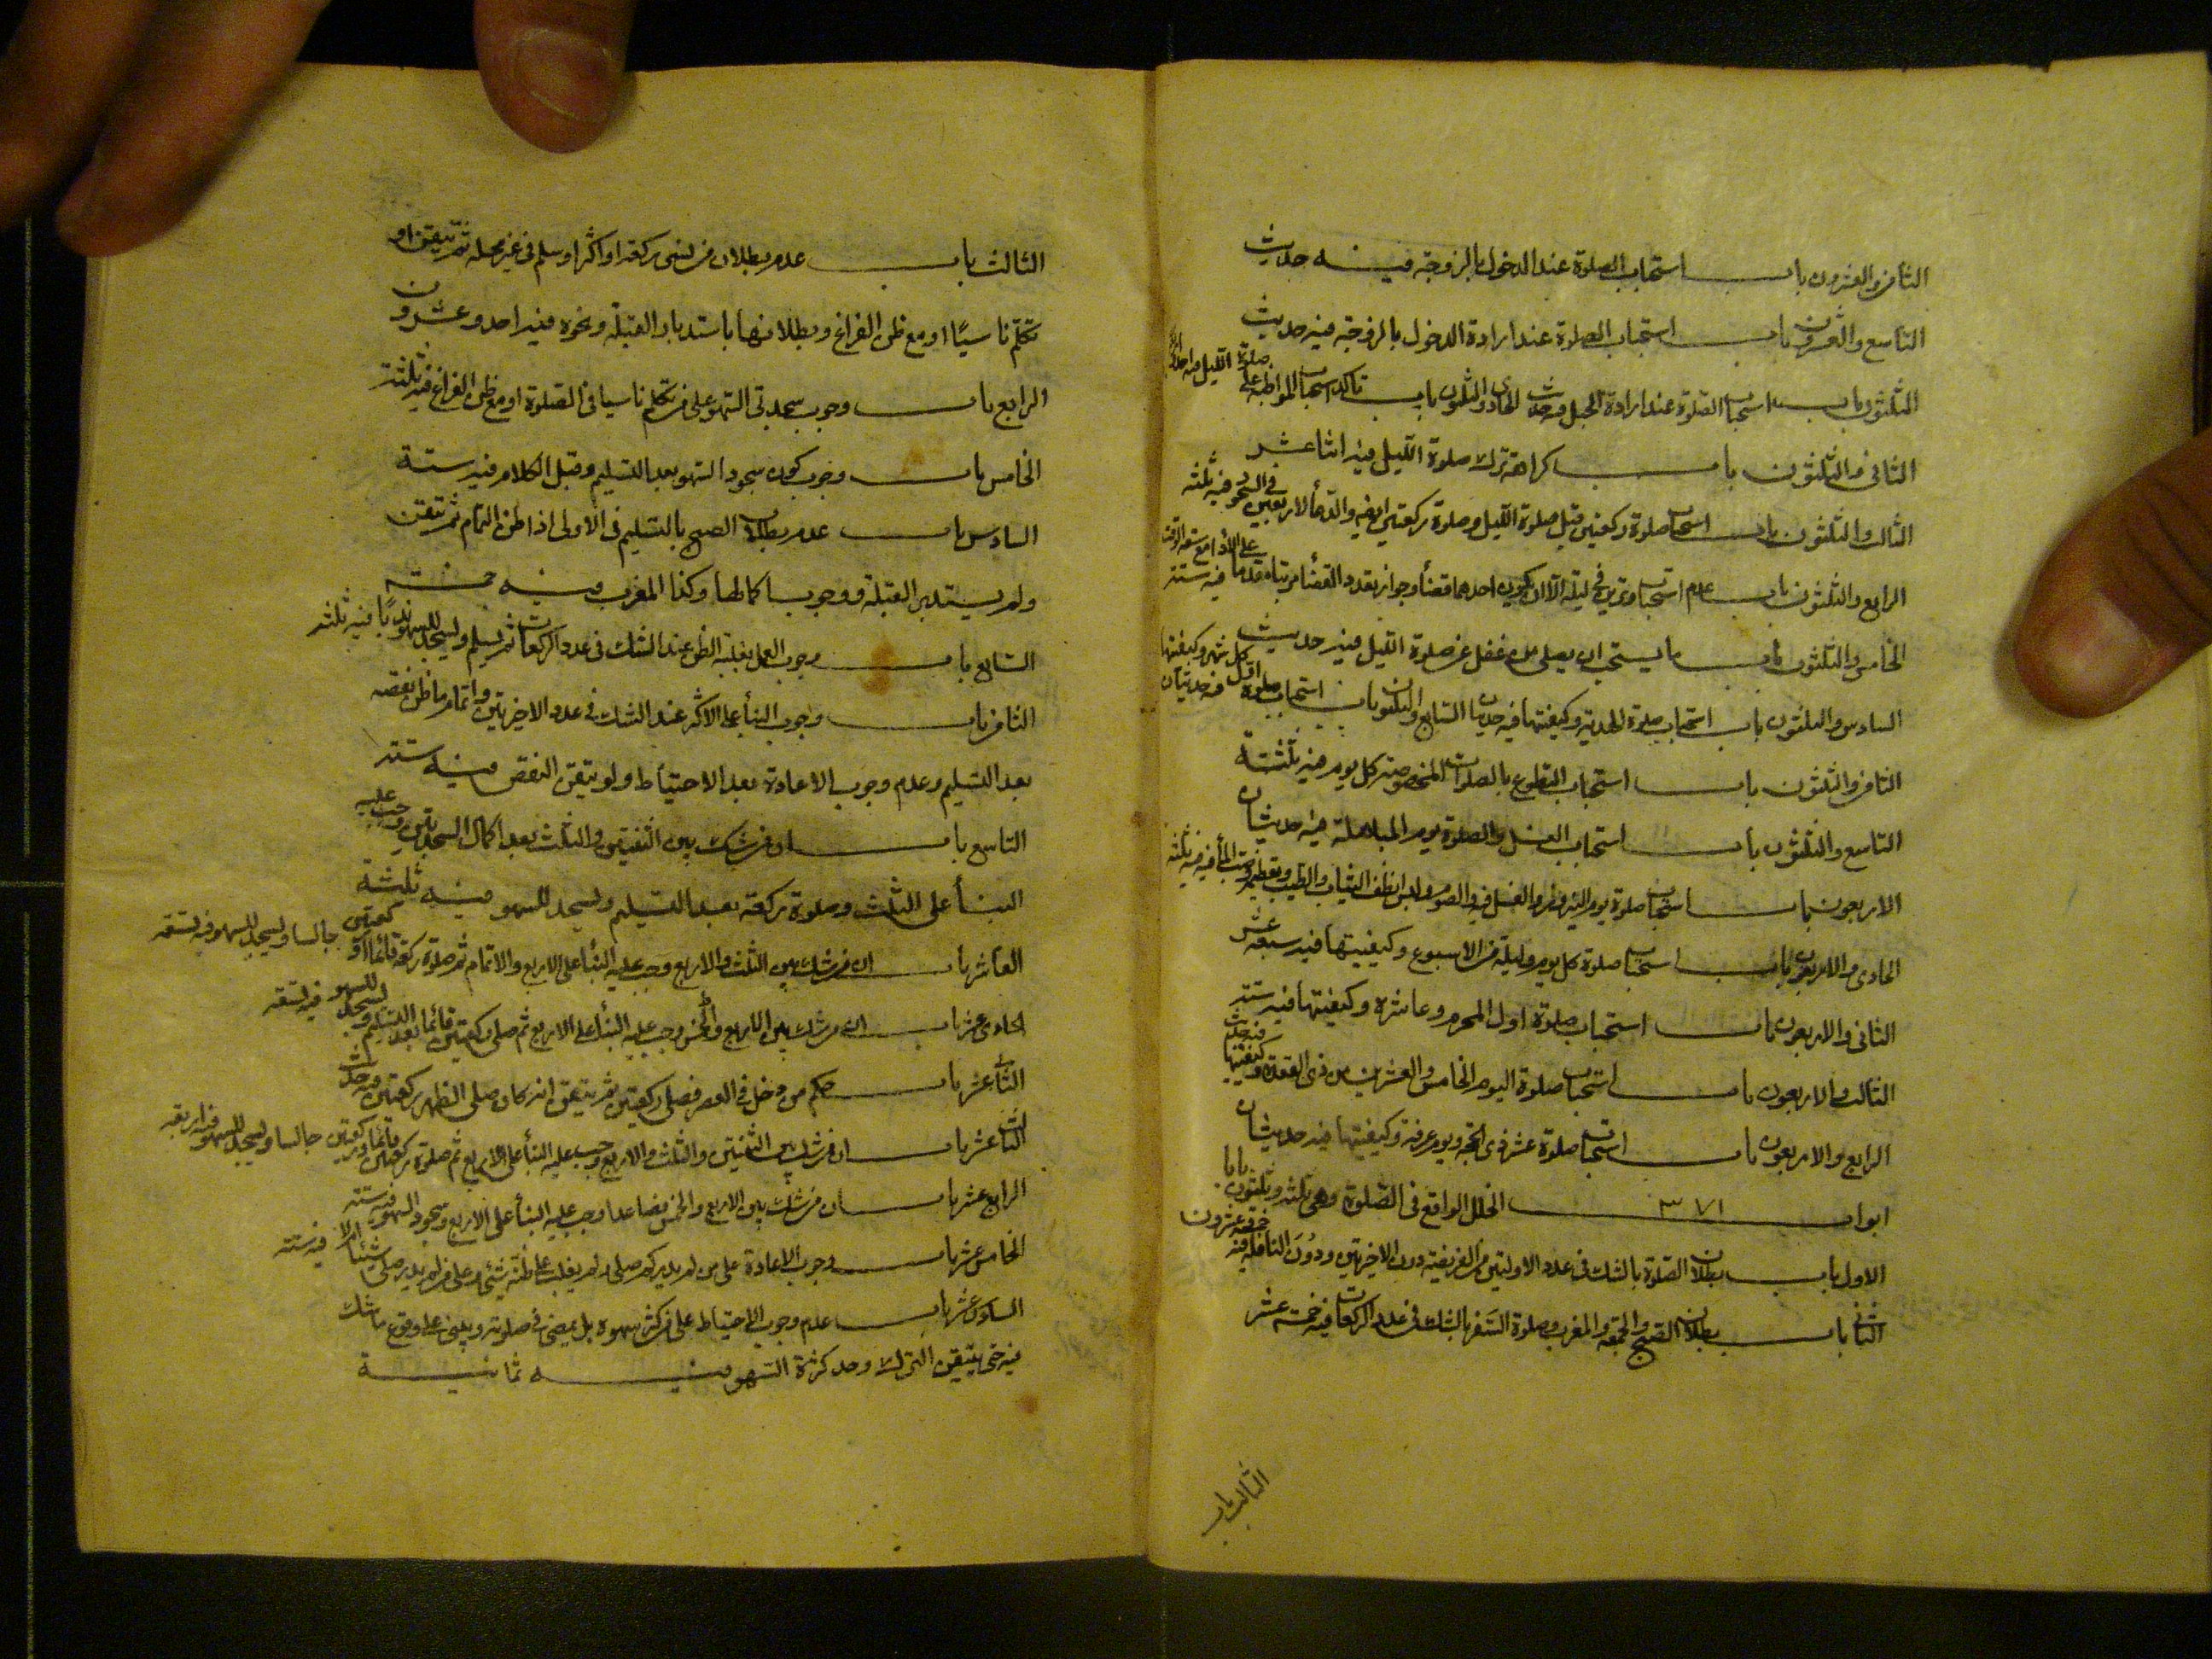 الثامن والعشرون باب استحباب الصلوة عند الدخول بالزوجة فيه حديث
التاسع والعشرون باب استحباب الصلوة عند ارادة الدخول بالزوجة فيه حديث
الثلثون باب استحباب الصلوة عند ارادة الحبل فيه حديث الحادي والثلثون باب تاكد استحباب المواظبة على صلوة الليل فيه احد
الثاني والثلثون باب كراهة ترك صلوة الليل فيه اثنا عشر
الثالث والثلثون باب استحباب صلوة ركعتين قبل صلوة الليل وصلوة ركعتين ايضا والدعأ لاربعين في السجود فيه ثلثه
الرابع والثلثون باب عدم استحباب وترين في ليلة الا ان يكون احدهما قضأ وجواز تعدد القضأ مرتبا مقدما على الأدا مع سعة الوقت فيه ستة
الخامس والثلثون باب ما يستحب ان يصلى من غفل عن صلوة الليل فيه حديث
السادس والثلثون باب استحباب صلوة الهدية وكيفيتها فيه حديثان السابع والثلثون باب استحباب صلوة اول كل شهر وكيفيتها فيه حديثان
الثامن والثلثون باب استحباب التطوع بالصلوات المخصوصة كل يوم فيه ثلثة
التاسع والثلثون باب استحباب الغسل والصلوة يوم المباهلة فيه حديثان
الاربعون باب استحباب صلوة يوم النيروز والغسل فيه والصوم ولبس انظف الثياب والطيب وتعظيمه وصب المأ فيه فيه ثلثه
الحادي والاربعون باب استحباب صلوة كل يوم وليلة من الاسبوع وكيفيتها فيه سبعة عشر
الثاني والاربعون باب استحباب صلوة اول المحرم وعاشره وكيفيتها فيه ستة
الثالث والاربعون باب استحباب صلوة اليوم الخامس والعشرين من ذي القعدة وكيفيتها فيه حديث
الرابع والاربعون باب استحباب صلوة عشر ذي الحجة ويوم عرفة وكيفيتها فيه حديثان
ابواب ٣٧١ الخلل الواقع في الصلوة وهي ثلثه وثلثون بابا
الاول باب بطلان الصلوة بالشك في عدد الاولتين من الفريضة دون الاخيرتين ودون النافلة فيه خمسة وعشرون
الثاني باب بطلان الصبح والجمعة والمغرب وصلوة السفر بالشك في عدد الركعات فيه خمسة عشر
الثالث باب
الثالث باب عدم بطلان من نسى ركعة او اكثر او سلم في غير محله ثم تيقن او
تكلم ناسيًا او مع ظن الفراغ وبطلانها باستدبار القبلة ونحوه فيه احد وعشرون
الرابع باب وجوب سجدتي السهو على من تكلم ناسيا في الصلوة او مع ظن الفراغ فيه ثلثة
الخامس باب وجوب كون سجود السهو بعد التسليم وقبل الكلام فيه ستة
السادس باب عدم بطلان الصبح بالتسليم في الاولى اذا ظن التمام ثم تيقن
ولم يستدبر القبلة ووجوب اكمالها وكذا المغرب فيه خمسة
السابع باب وجوب العمل بغلبة الظن عند الشك في عدد الركعات ثم يسلم ويسجد للسهو ندبًا فيه ثلثة
الثامن باب وجوب البنأ على الاكثر عند الشك في عدد الاخيرتين واتمام ما ظن نقصه
بعد التسليم وعدم وجوب الاعادة بعد الاحتياط ولو تيقن النقص فيه ستة
التاسع باب ان من شك بين الثنتين والثلث بعد اكمال السجدتين وجب عليه
البنأ على الثلث وصلوة ركعة بعد التسليم ويسجد للسهو فيه ثلثة
العاشر باب ان من شك بين الثلث والاربع وجب عليه البنأ على الاربع والاتمام ثم صلوة ركعة قائما او ركعتين جالسا ويسجد للسهو فيه تسعة
الحادي عشر باب ان من شك بين الاربع والخمس وجب عليه البنأ على الاربع ثم صلى ركعتين قائما بعد التسليم ويسجد للسهو فيه تسعة
الثاني عشر باب حكم من دخل في العصر فصلى ركعتين ثم تيقن انه كان صلى الظهر ركعتين فيه حديث
الثالث عشر باب ان من شك بين الثنتين والثلث والاربع وجب عليه البنأ على الاربع ثم صلوة ركعتين قائما وركعتين جالسا ويسجد للسهو فيه اربعة
الرابع عشر باب ان من شك بين الاربع والخمس فصاعدا وجب عليه البنأ على الاربع وسجود السهو فيه ستة
الخامس عشر باب وجوب الاعادة على من لم يدر كم صلى ولم يغلب على ظنه شئ وعلى من لم يدر صلى شيئا ام لا فيه ستة
السادس عشر باب عدم وجوب الاحتياط على من كثر سهوه بل يمضى في صلوته ويبنى على وقوع ما شك
فيه حتى يتيقن الترك وحد كثرة السهو فيه ثمانية